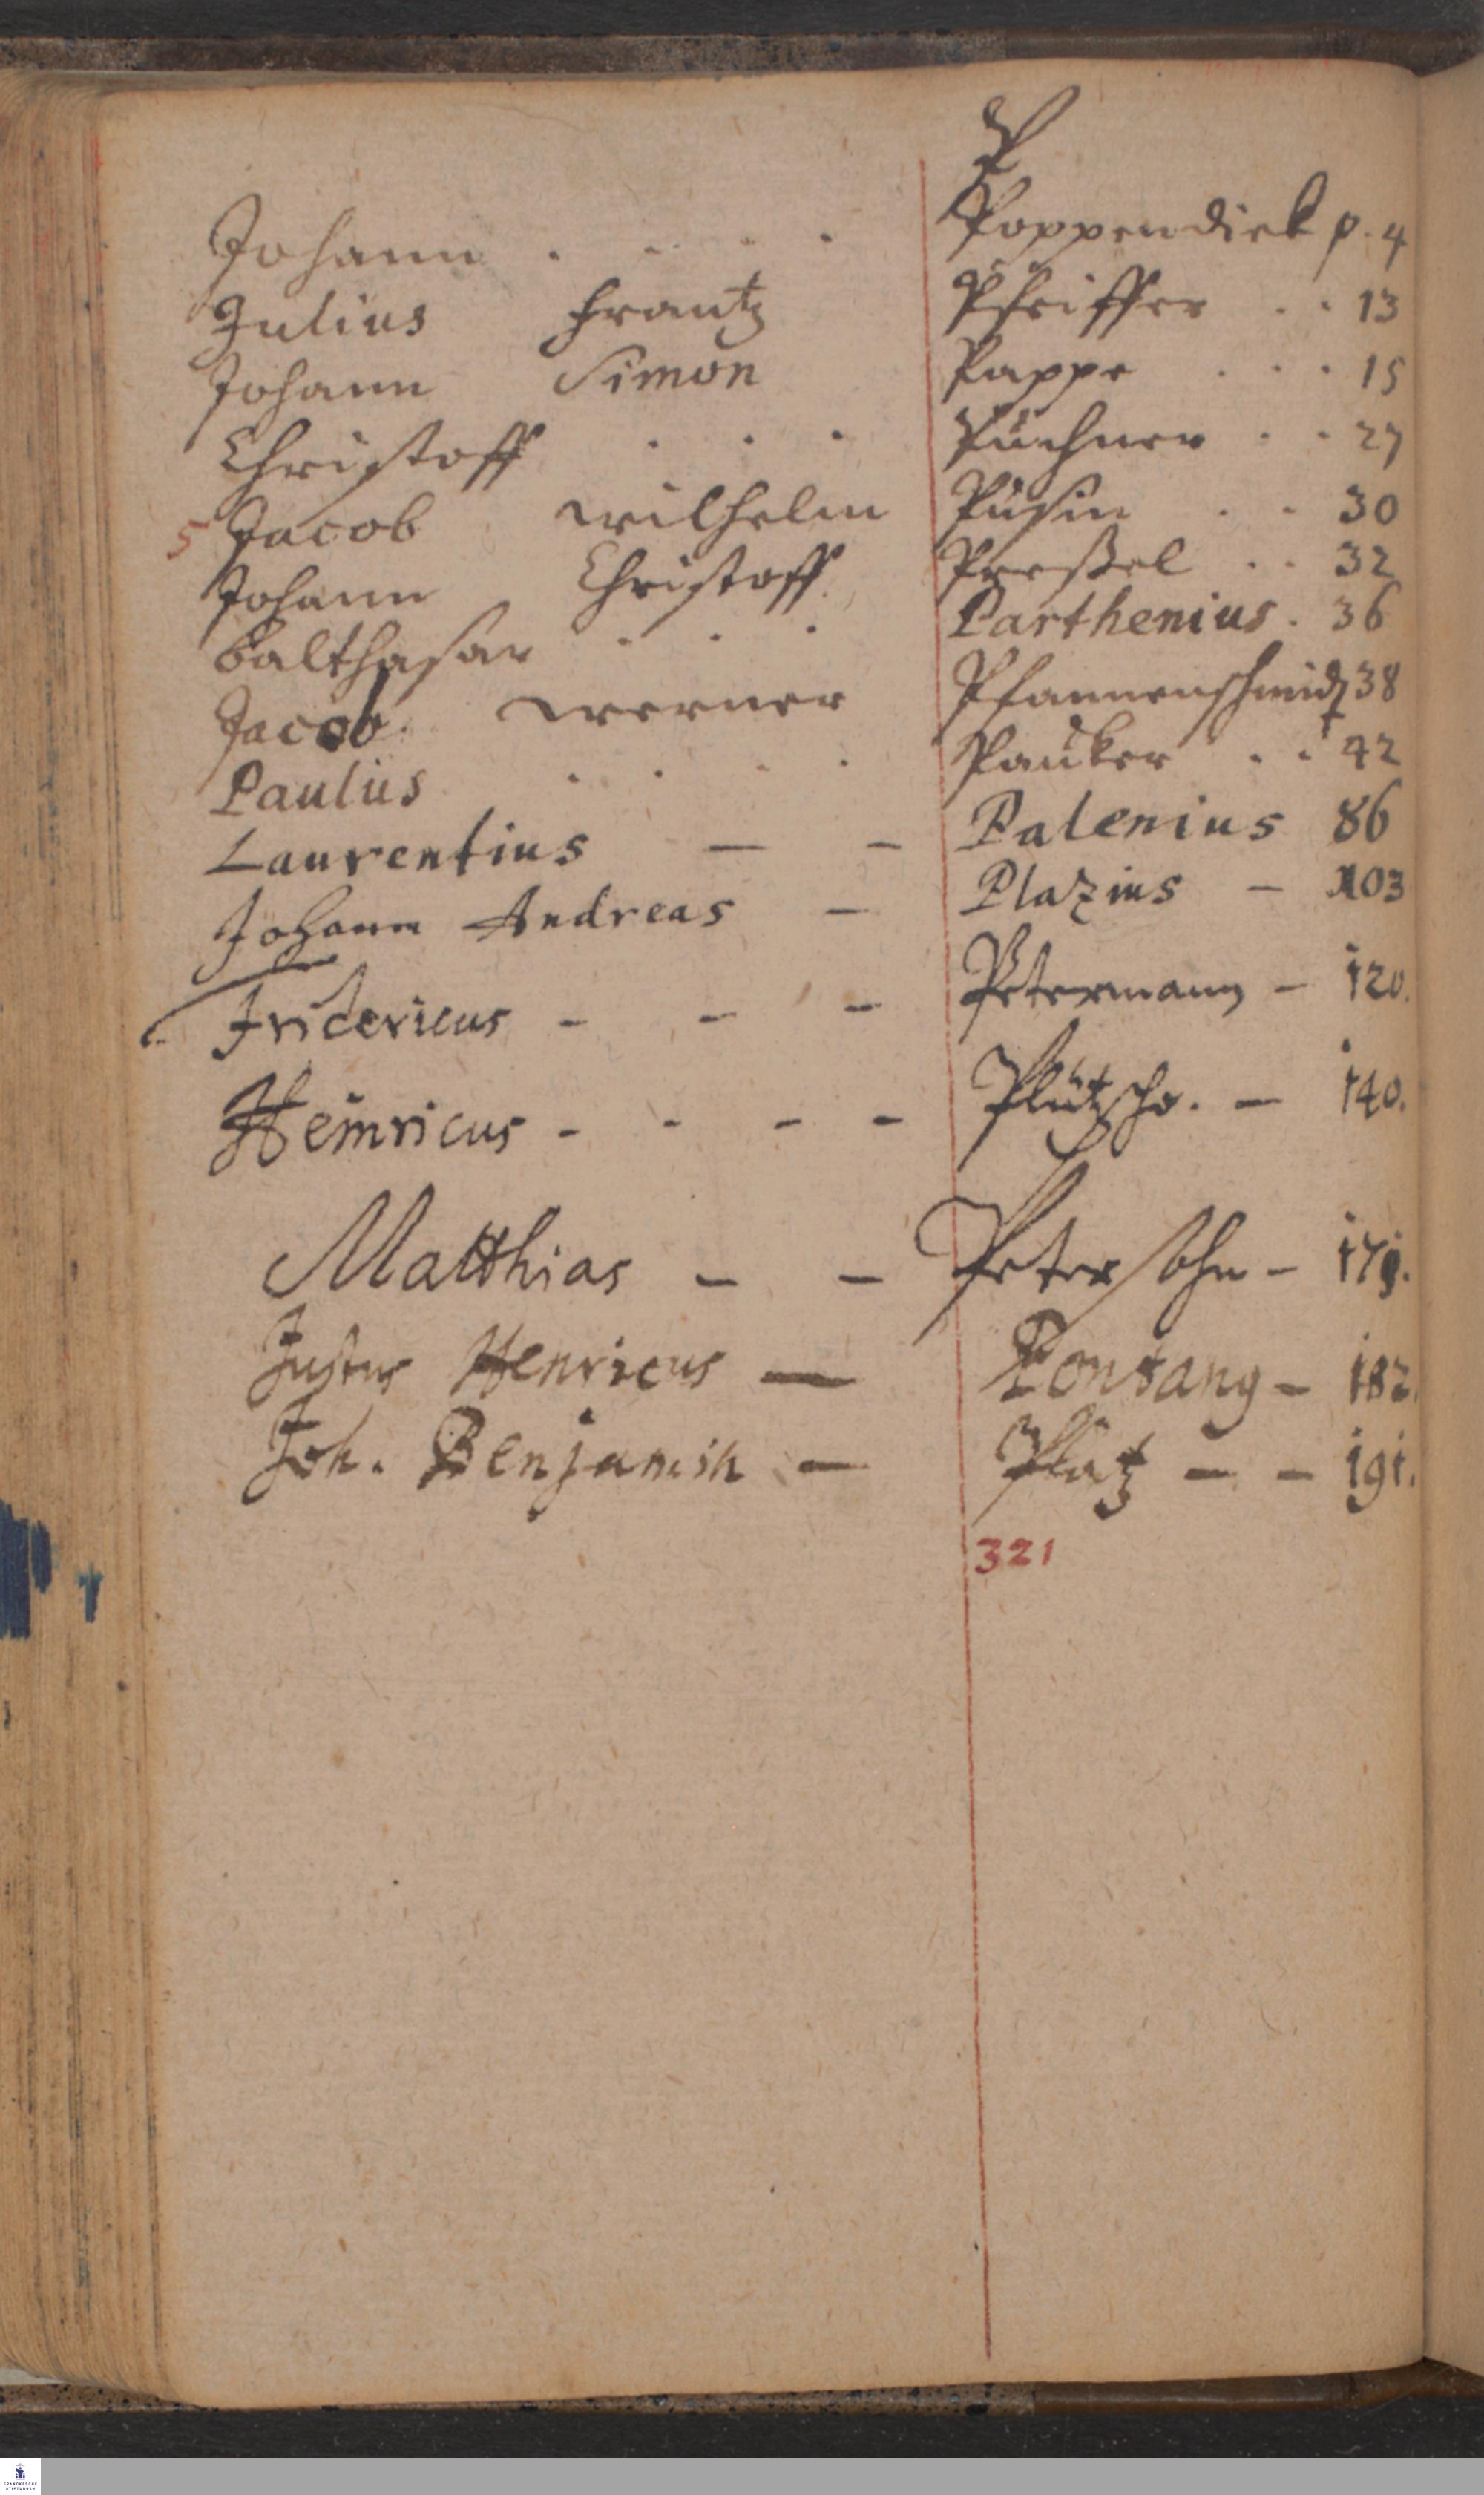 P
Johann . . . . Poppendiek p. 4
Julius Frantz Pfeiffer . . 13
Johann Simon Pappe . . . 15
Christoff . . . Püchner . . 27
5 Jacob Wilhelm Püsin . . 30
Johann Christoff. Preßel . . 32
Balthasar . . . Parthenius . 36
Jacob. Werner Pfannenschmidt 38
Paulus . . . . Pauker . . 42
Laurentius — — Palenius 86
Johann Andreas — Plazius — 103
Fridericus - - - Petermann - 120.
Heinricus - - - - Plützscho. — 140.
Matthias - - Petersohn - 179.
Justus Henricus — Pontany - 182.
Joh. Benjamin — Platz - - 191.
321
FRANCKESCHE
STIFTUNGEN